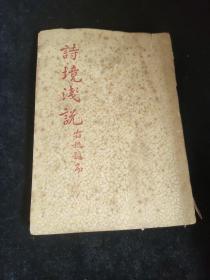 詩境淺說